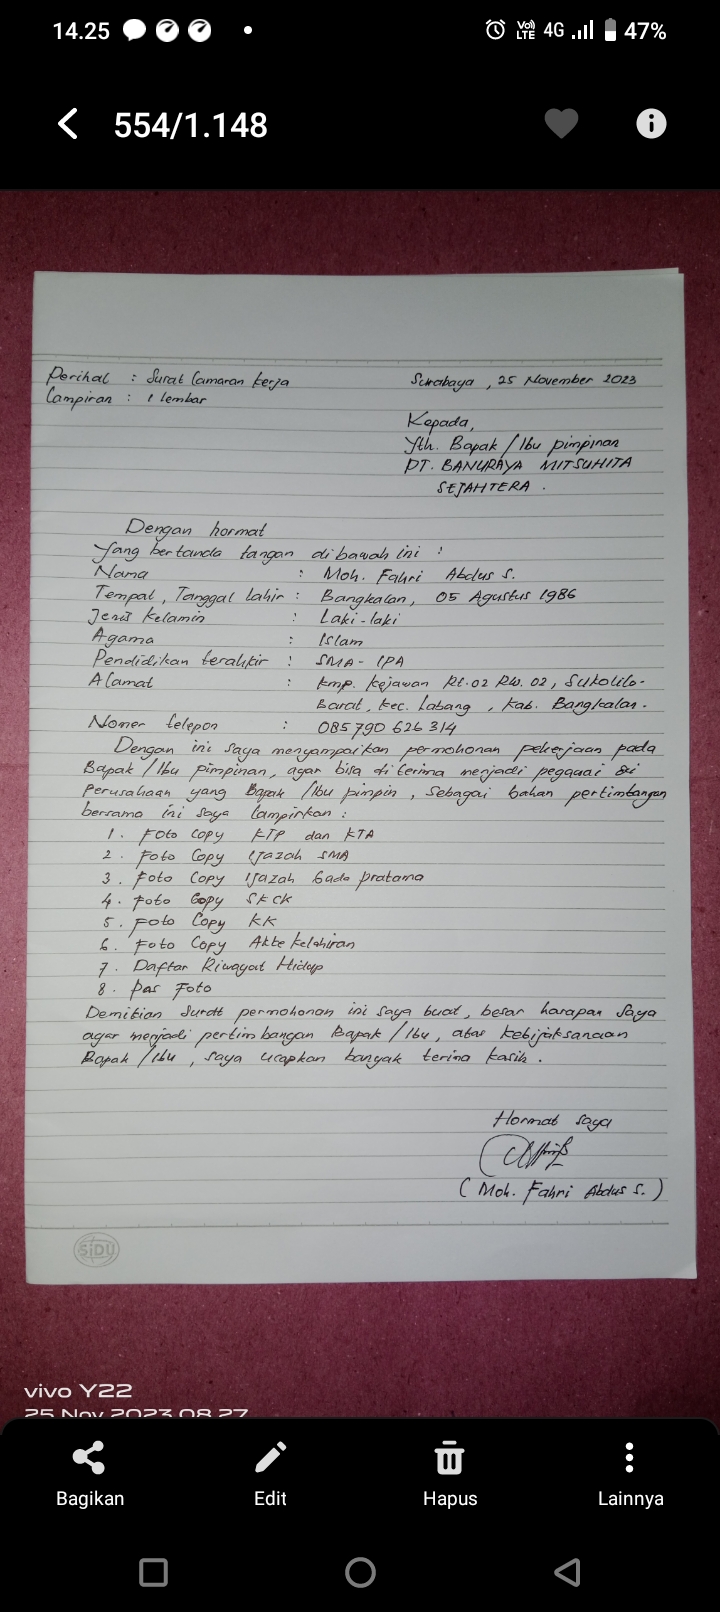 14.25 Vo) LTE 4G 47%
554/1.148
Perihal : Surat Lamaran Kerja
Surabaya , 25 November 2023
Lampiran : 1 lembar
Kepada,
Yth. Bapak / Ibu pimpinan
PT. BANURAYA MITSUHITA
SEJAHTERA .
Dengan hormat
Yang bertanda tangan dibawah ini :
Nama : Moh. Fahri Abdus S.
Tempat, Tanggal lahir : Bangkalan, 05 Agustus 1986
Jenis Kelamin : Laki-laki
Agama : Islam
Pendidikan terakhir : SMA - IPA
Alamat : Kmp. Kejawan Rt.02 Rw. 02, Sukolilo-
Barat, Kec. Labang , Kab. Bangkalan.
Nomer telepon : 085 790 626 314
Dengan ini saya menyampaikan permohonan pekerjaan pada
Bapak / Ibu pimpinan, agar bisa di terima menjadi pegawai di
Perusahaan yang Bapak / Ibu pimpin , Sebagai bahan pertimbangan
bersama ini saya lampirkan :
1. Foto Copy KTP dan KTA
2. Foto Copy Ijazah SMA
3. Foto Copy Ijazah Gada pratama
4. Foto Copy SKCK
5. Foto Copy KK
6. Foto Copy Akte Kelahiran
7. Daftar Riwayat Hidup
8. Pas Foto
Demikian Surat permohonan ini saya buat, besar harapan saya
agar menjadi pertimbangan Bapak / Ibu, atas kebijaksanaan
Bapak / Ibu , saya ucapkan banyak terima kasih .
Hormat saya
( Moh. Fahri Abdus S. )
SiDU
vivo Y22
25 Nov 2023 08.27
Bagikan Edit Hapus Lainnya